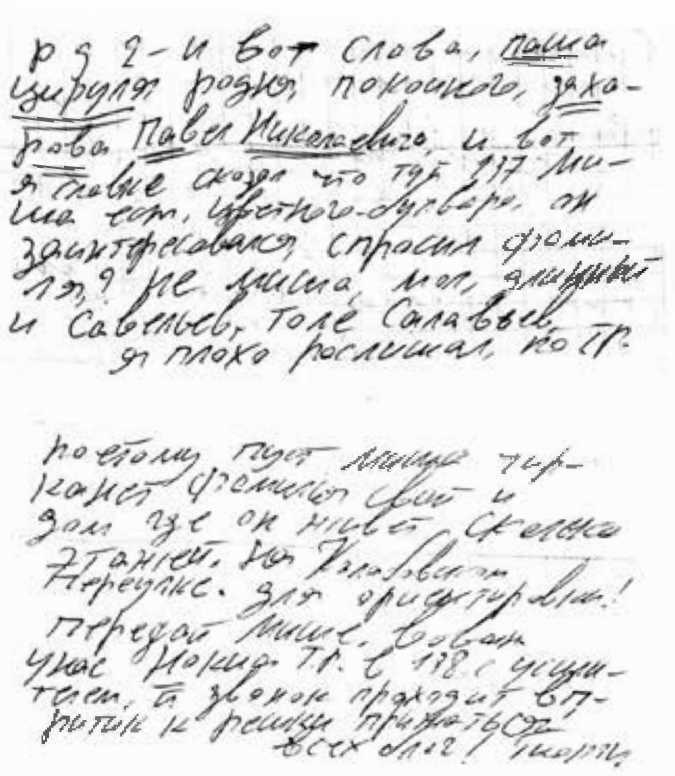 р я 2 - и вот слова, паша
цируля родня, покоиного, заха-
рова Павел Николаевича, и вот
я славке сказал что тут 137 ми-
ша ест, цветного-бульвара, он
заинтересовался, спросил фами-
ля,? не миша, мол, длинный
и Савельев, толе Салавьев,
я плохо рослишал, по тр.
поетому пуст миша чир-
канет фамилья свой и
дом где он живет, сколько
этажей. на Колобовском
переулке. для ориентировки!
передай мише, вован
унас Нокиа тр. в 138 с усили-
телем, и звонок проходит вп-
ритик к решки прижаться
всех благ!